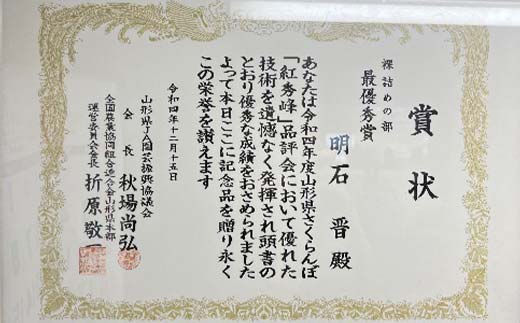 賞状
裸詰めの部
最優秀賞
明石 晋 殿
あなたは令和四年度山形県さくらんぼ
「紅秀峰」品評会において優れた
技術を遺憾なく発揮され頭書の
とおり優秀な成績をおさめられました
よって本日ここに記念品を贈り永く
この栄誉を讃えます
令和四年十二月十五日
山形県JA園芸振興協議会
会長 秋場尚弘
全国農業協同組合連合会山形県本部
運営委員会会長 折原敬一